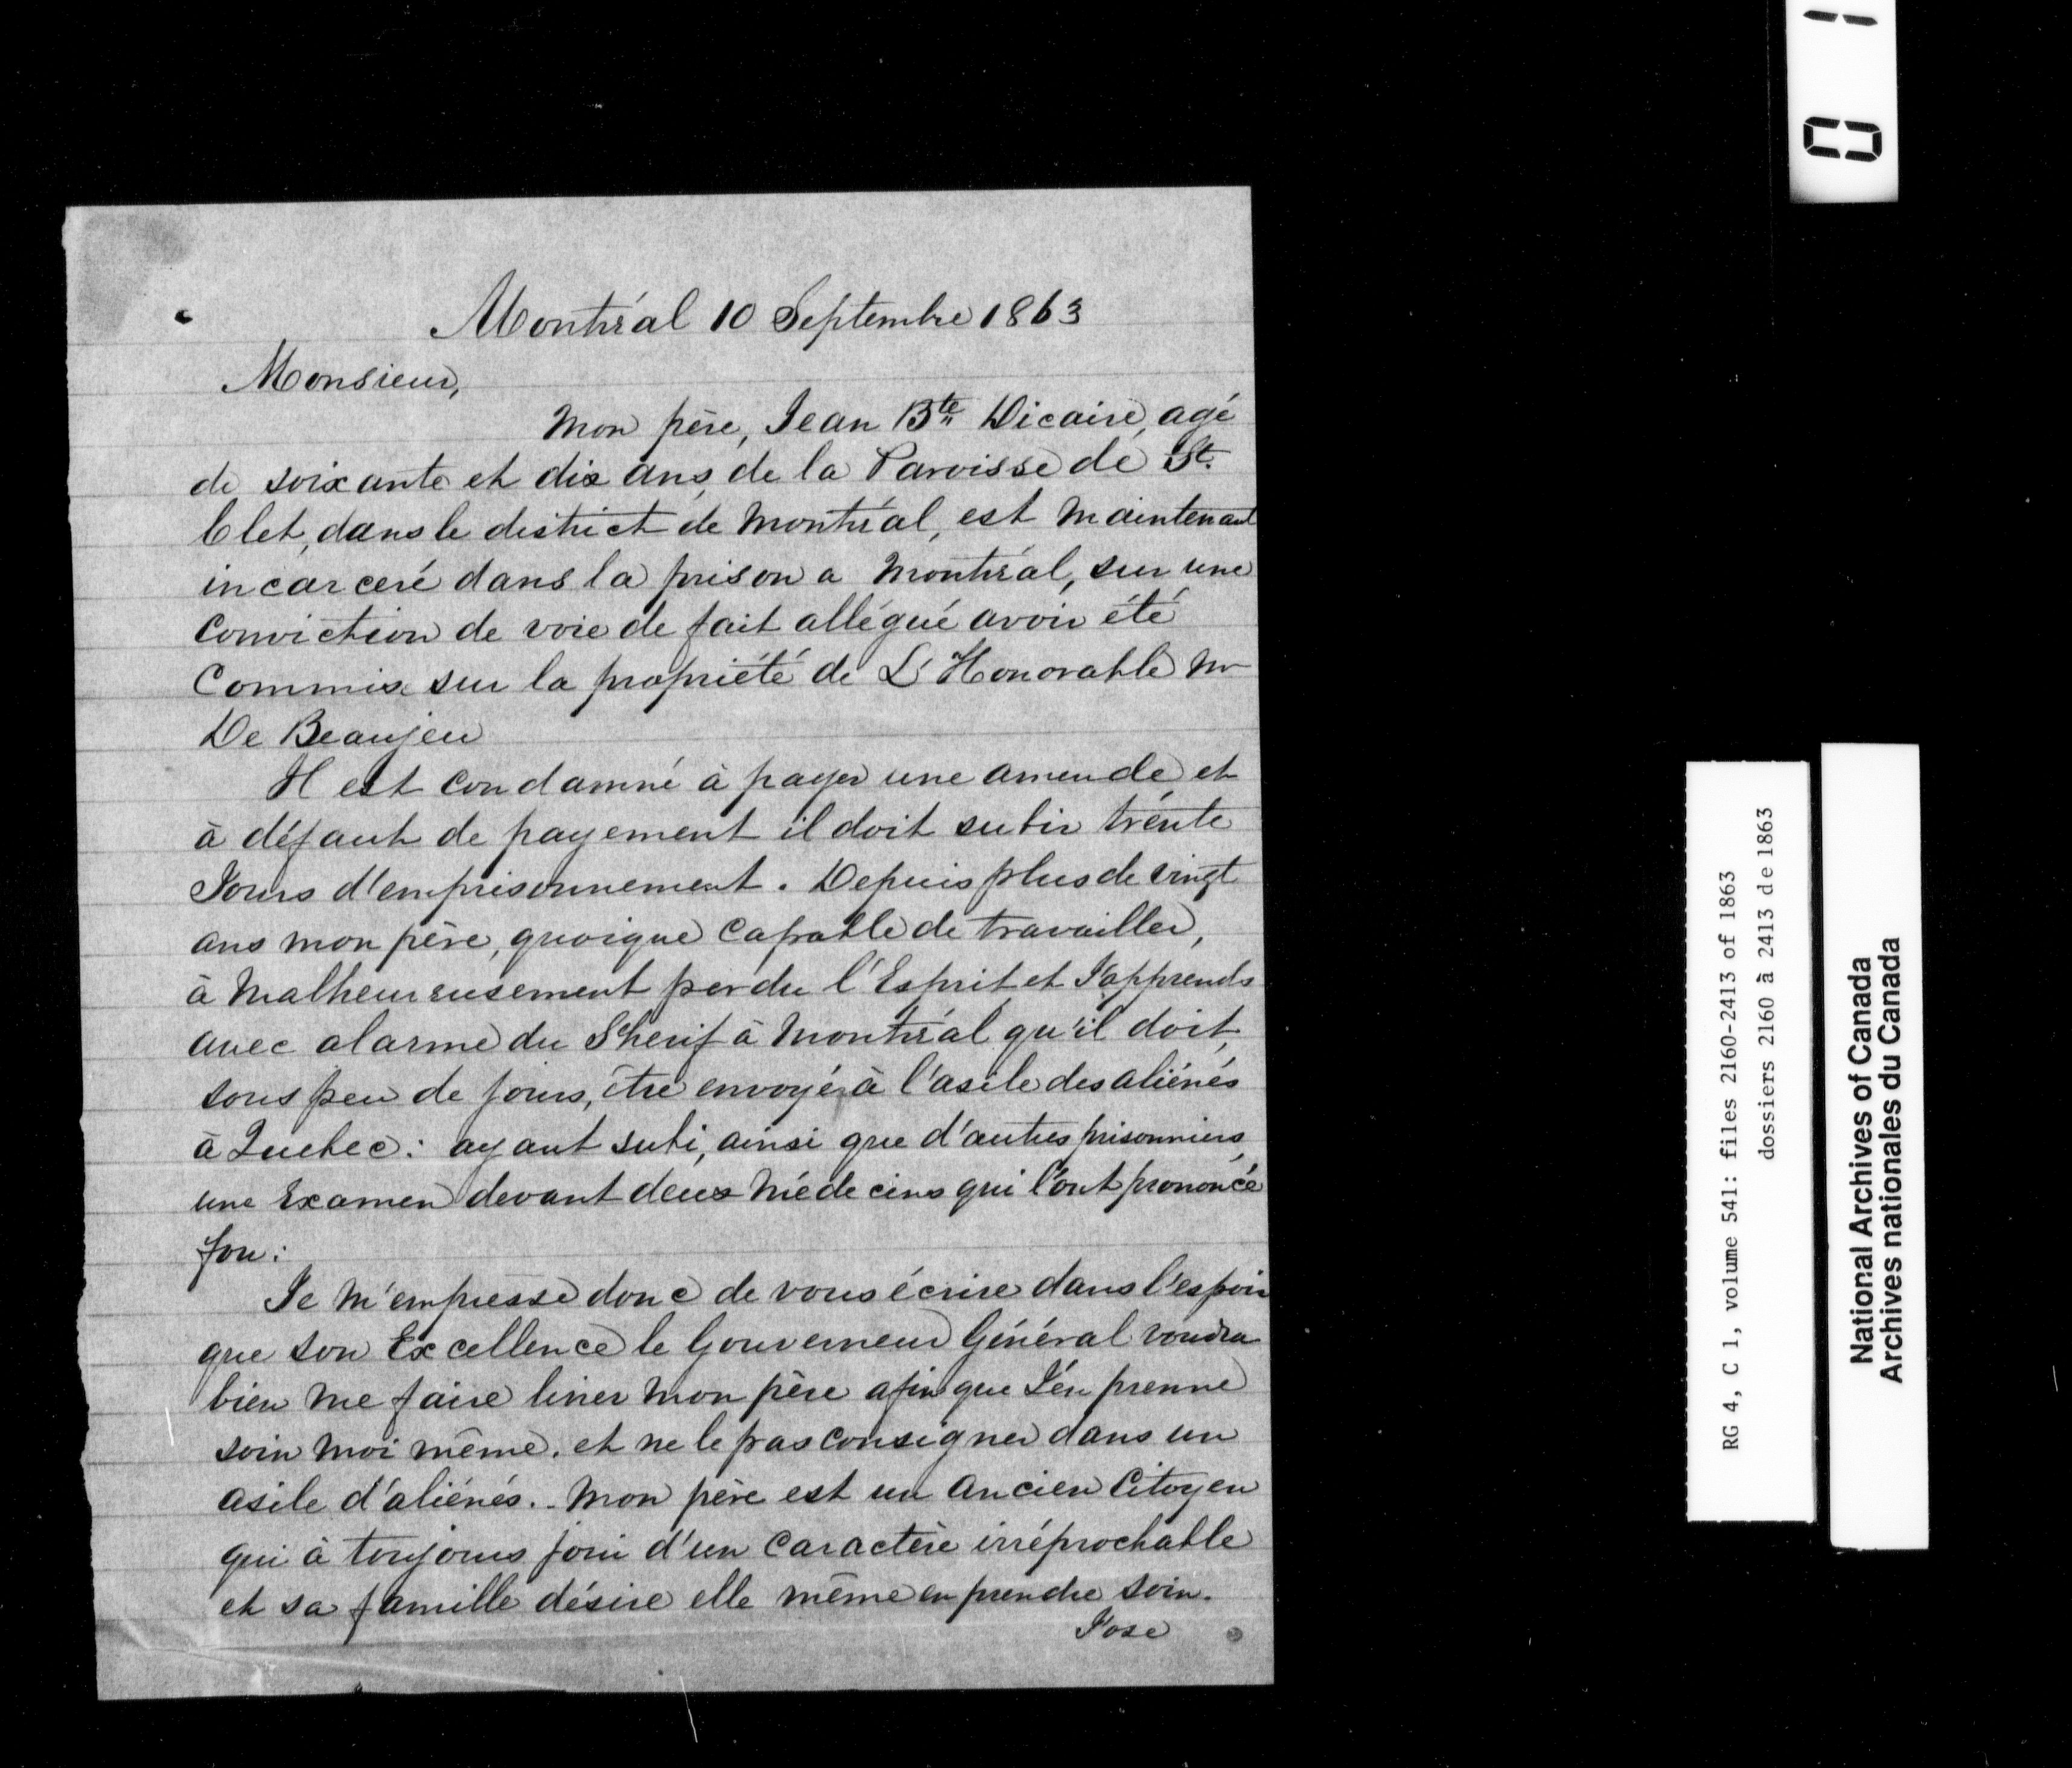 Montréal 10 Septembre 1863
Monsieur,
Mon père, Jean Bte Dicaire, agé
de soixante et dix ans, de la Paroisse de St.
Clet, dans le district de Montréal, est Maintenant
incarceré dans la prison a Montréal, sur une
Conviction de voie de fait allégué avoir été
Commis sur la propriété de L'Honorable Mr
De Beaujeu
Il est Condamné à payer une amende et
à défaut de payement il doit subir trente
Jours d'emprisonnement. Depuis plus de vingt
ans mon père, quoique Capable de travailler,
à Malheureusement perdu l'Esprit et J'apprends
avec alarme du Sherif à Montréal qu'il doit,
sous peu de jours, être envoyé à l'asile des aliénés
à Quebec: ayant subi, ainsi que d'autres prisonniers,
une Examen devant deux Médecins qui l'ont prononcé
fou:
Je M'empresse donc de vous écrire dans l'espoir
que son Excellence le Gouverneur Général voudra
bien Me faire livrer Mon père afin que J'en prenne
soin Moi même. et ne le pas Consigner dans un
asile d'aliénés. - Mon père est un Ancien Citoyen
qui à toujours joui d'un Caractère irréprochable
et sa famille désire elle même en prendre soin.
J'ose
0 1
RG 4, C 1, volume 541: files 2160-2413 of 1863
dossiers 2160 à 2413 de 1863
National Archives of Canada
Archives nationales du Canada